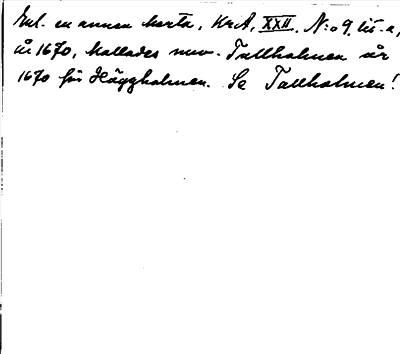 Enl. en annan karta, KrA, XXII, N:o 9, lit. a,
år 1670, kallades nuv. Tallholmen år
1670 för Häggholmen. Se Tallholmen!